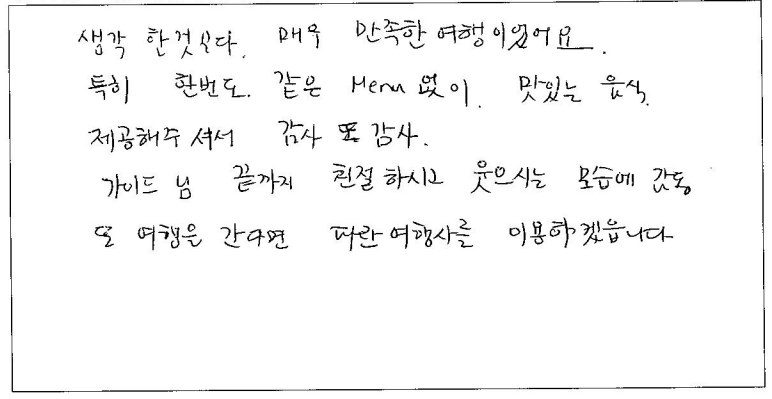 생각 한것 싣다. 매우 만족한 여행이었어요.
특히 한번도. 같은 Menu 없이. 맛있는 음식.
제공해주셔서 감사 또 감사.
가이드 님 끝까지 친절 하시고 웃으시는 모습에 감동
또 여행을 간다면 파란여행사를 이용하겠읍니다